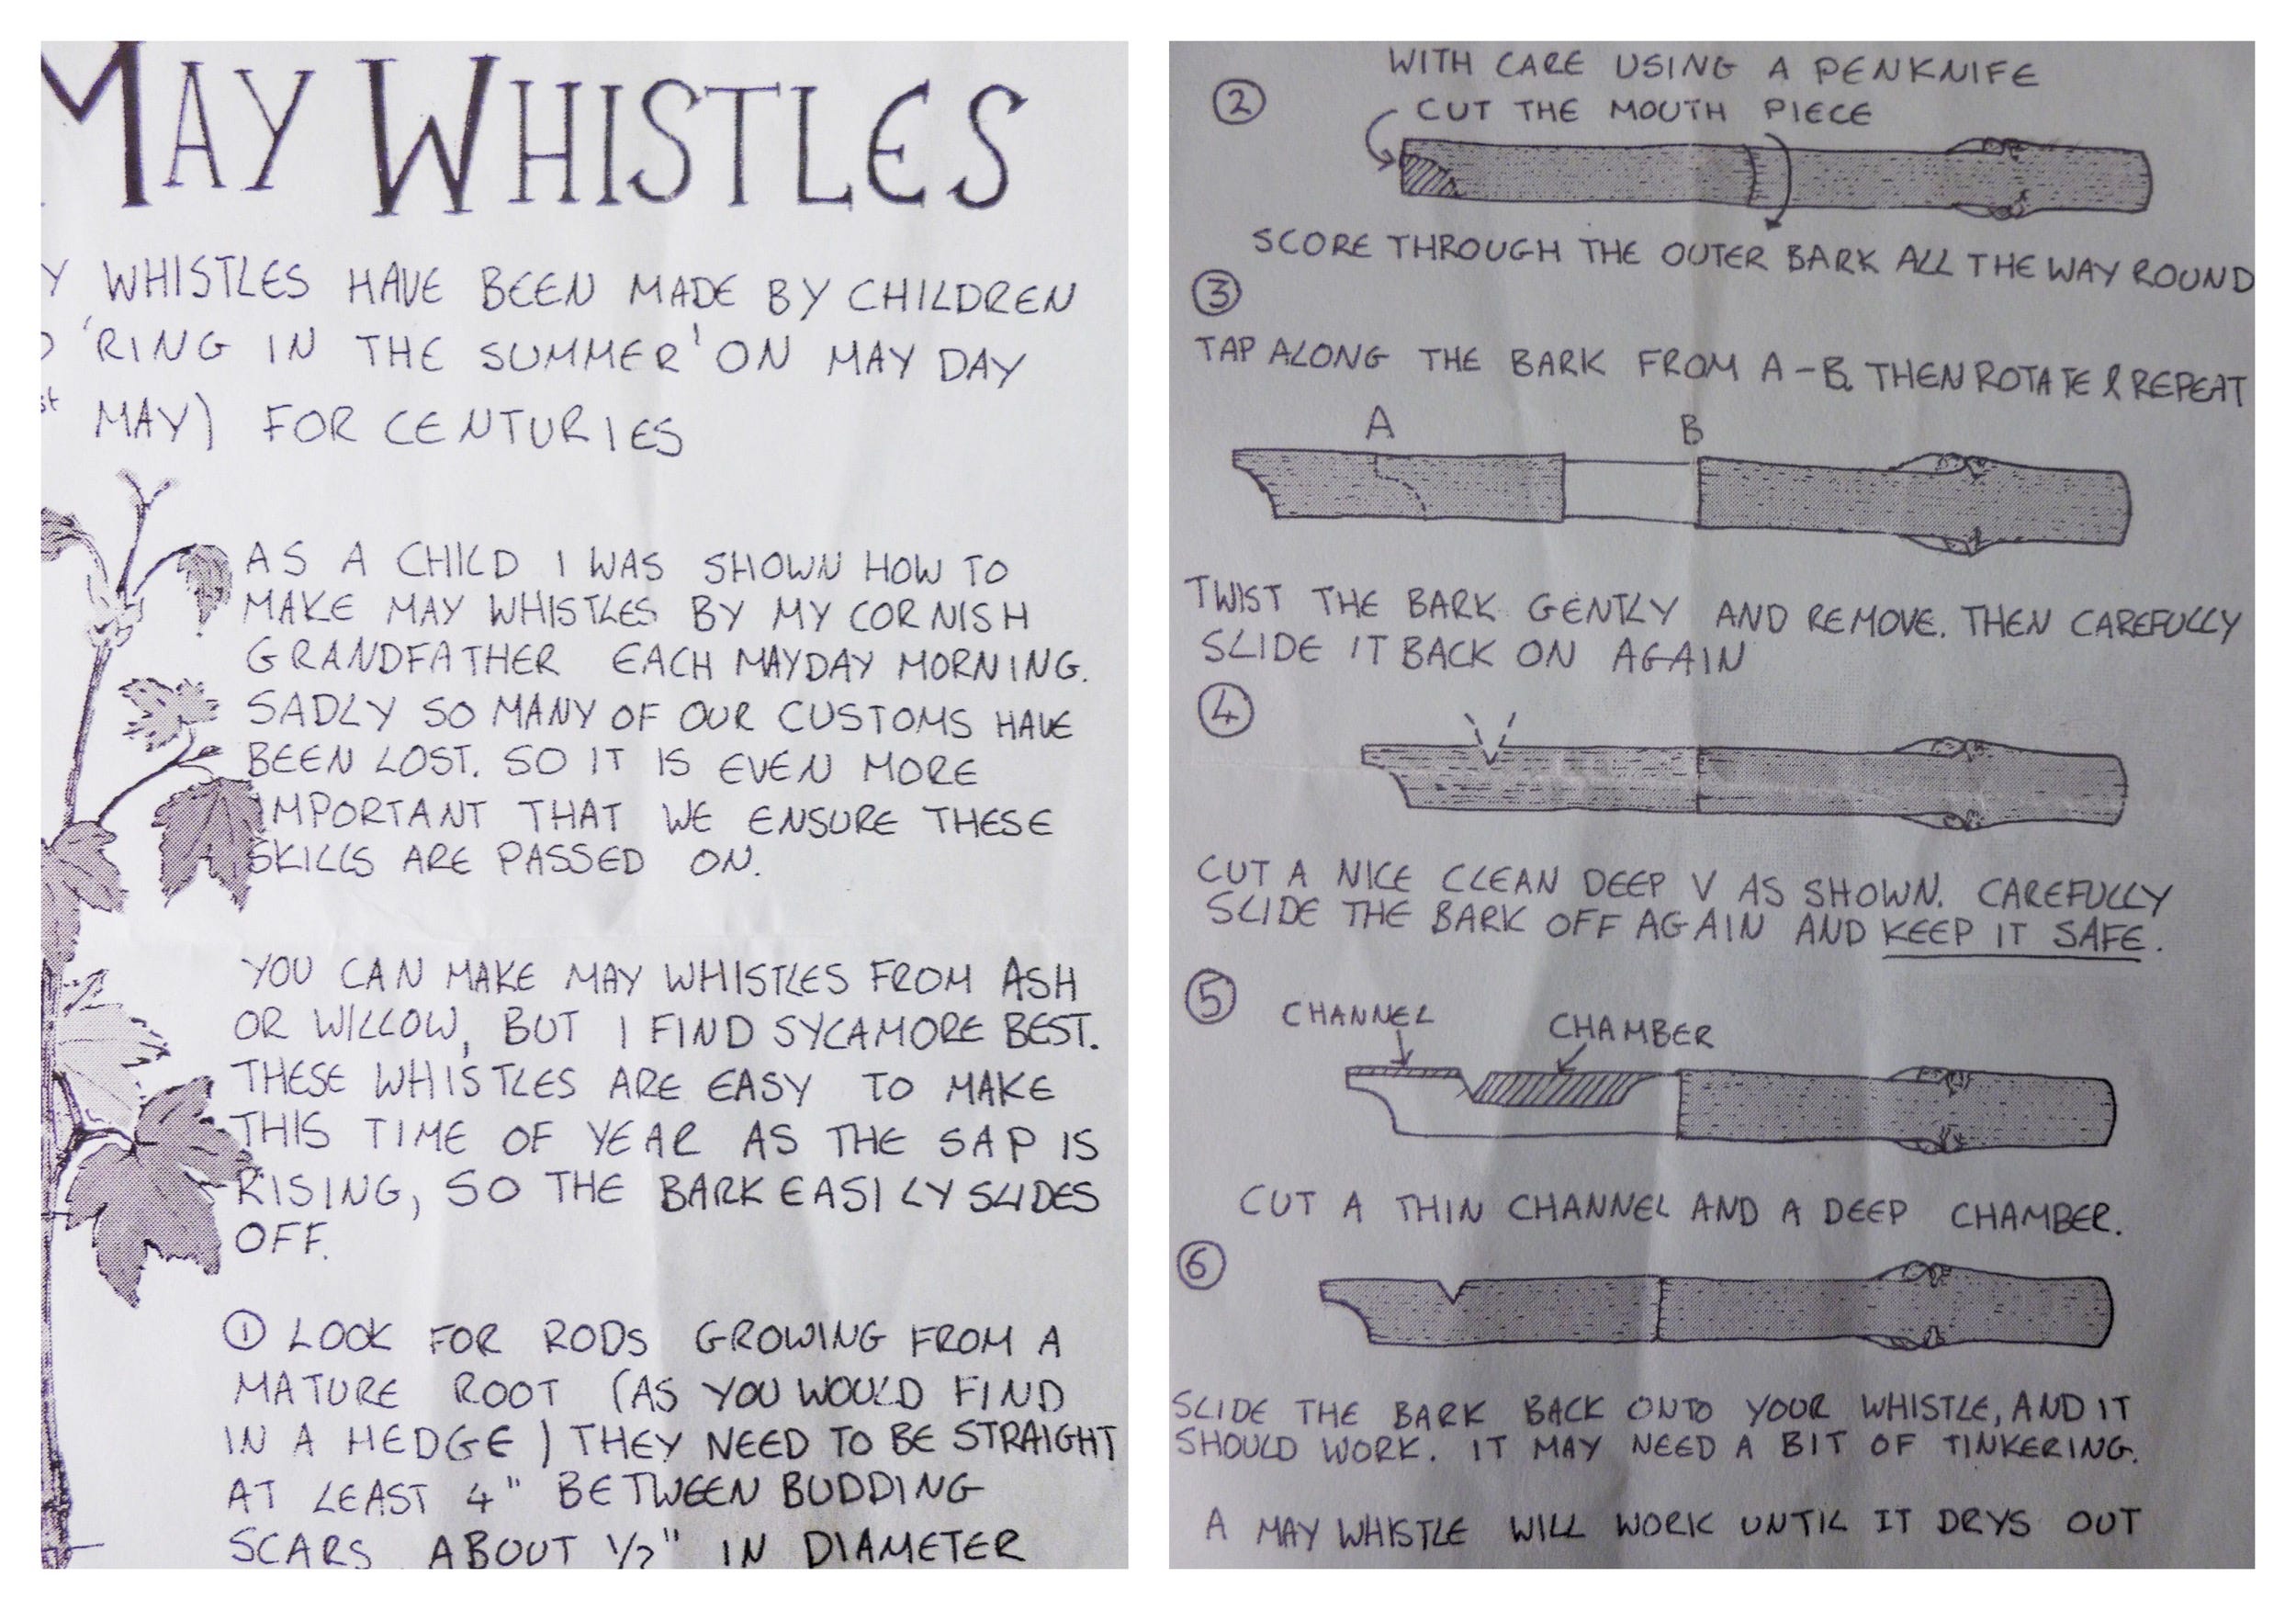 MAY WHISTLES
Y WHISTLES HAVE BEEN MADE BY CHILDREN
'RING IN THE SUMMER' ON MAY DAY
st MAY) FOR CENTURIES
AS A CHILD I WAS SHOWN HOW TO
MAKE MAY WHISTLES BY MY CORNISH
GRANDFATHER EACH MAYDAY MORNING.
SADLY SO MANY OF OUR CUSTOMS HAVE
BEEN LOST. SO IT IS EVEN MORE
IMPORTANT THAT WE ENSURE THESE
SKILLS ARE PASSED ON.
YOU CAN MAKE MAY WHISTLES FROM ASH
OR WILLOW, BUT I FIND SYCAMORE BEST.
THESE WHISTLES ARE EASY TO MAKE
THIS TIME OF YEAR AS THE SAP IS
RISING, SO THE BARK EASILY SLIDES
OFF.
① LOOK FOR RODS GROWING FROM A
MATURE ROOT (AS YOU WOULD FIND
IN A HEDGE) THEY NEED TO BE STRAIGHT
AT LEAST 4" BETWEEN BUDDING
SCARS ABOUT 1/2" IN DIAMETER
WITH CARE USING A PENKNIFE
② CUT THE MOUTH PIECE
SCORE THROUGH THE OUTER BARK ALL THE WAY ROUND
③
TAP ALONG THE BARK FROM A-B. THEN ROTATE & REPEAT
A B
TWIST THE BARK GENTLY AND REMOVE. THEN CAREFULLY
SLIDE IT BACK ON AGAIN
④
CUT A NICE CLEAN DEEP V AS SHOWN. CAREFULLY
SLIDE THE BARK OFF AGAIN AND KEEP IT SAFE.
⑤ CHANNEL CHAMBER
CUT A THIN CHANNEL AND A DEEP CHAMBER.
⑥
SLIDE THE BARK BACK ONTO YOUR WHISTLE, AND IT
SHOULD WORK. IT MAY NEED A BIT OF TINKERING.
A MAY WHISTLE WILL WORK UNTIL IT DRYS OUT